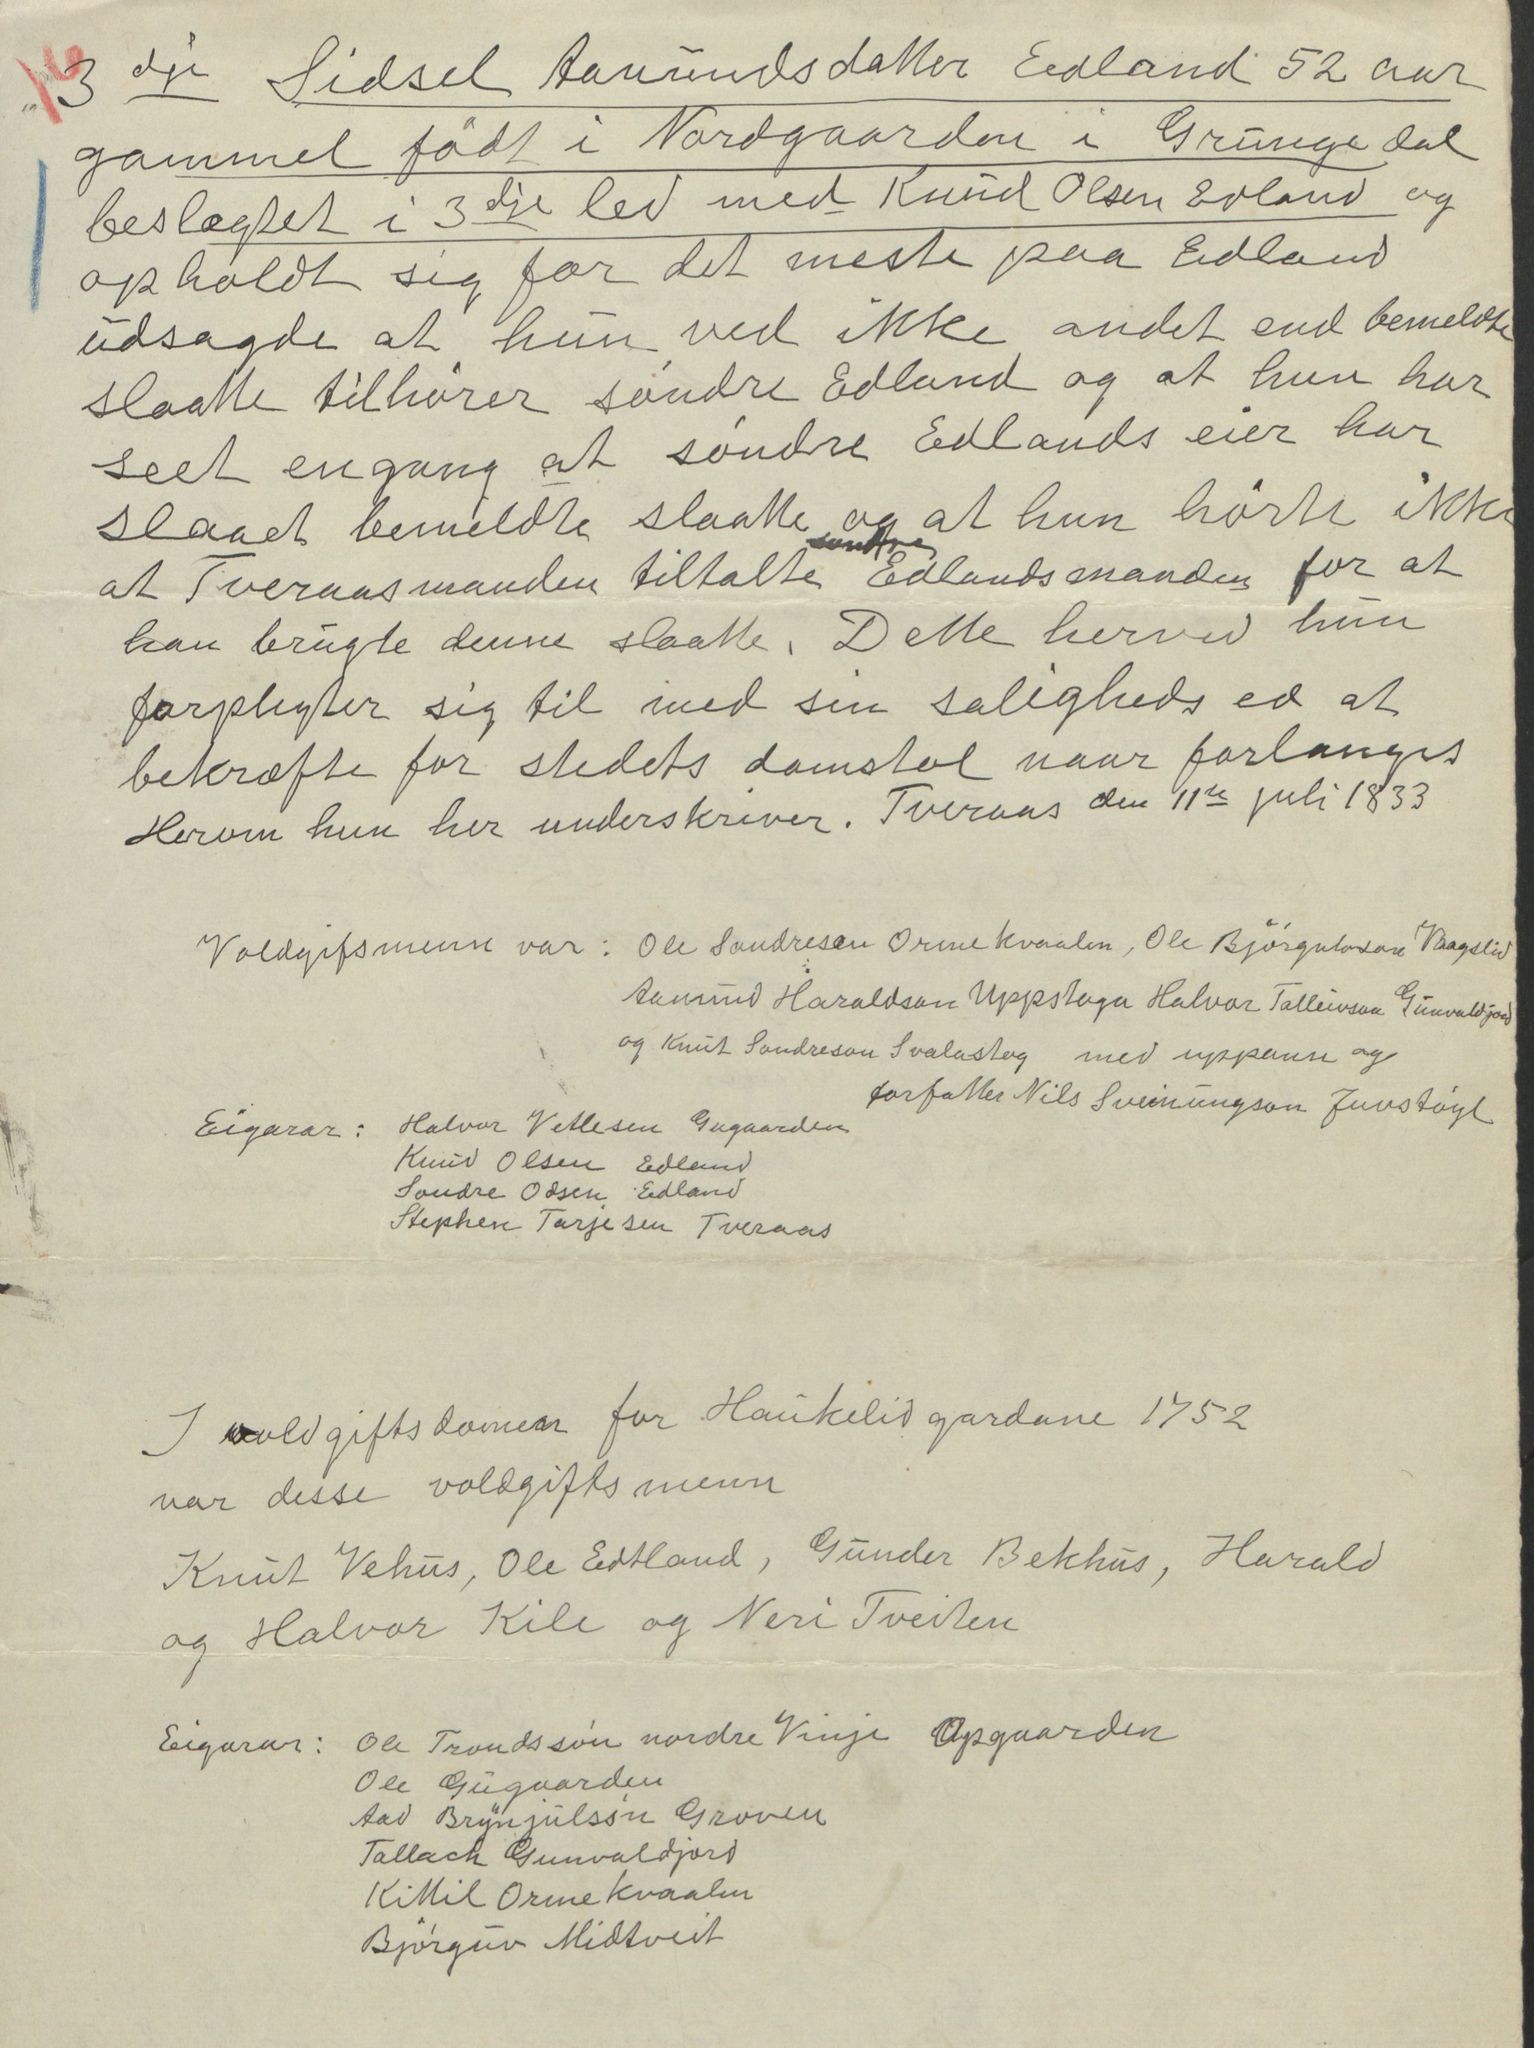 3 dje Sidsel Aamundsdatter Edland 52 aar
gammel födt i Nordgaarden i Grungedal
beslægtet i 3 dje led med Knud Olsen Edland og
opholdt sig for det meste paa Edland
udsagde at hun ved ikke andet end bemeldte
slaatte tilhörer söndre Edland og at hun har
seet engang at söndre Edlands eier har
slaaet bemeldte slaatte og at hun hörte ikke
at Tveraasmanden tiltalte söndre Edlandsmanden for at
han brugte denne slaatte. Dette herved hun
forpligter sig til med sin saligheds ed at
bekræfte for stedets domstol naar forlanges
Herom hun her underskriver. Tveraas den 11te juli 1833
Voldgifsmenn var: Ole Sondresen Ormekvaalen, Ole Björgulvson Vaagslid
Aamund Haraldson Uppstoga Halvor Talleivson Gunvaldjord
og Knut Sondreson Svalastog med uppenn og
forfatter Nils Sveinungson Juvstöyl
Eigarar: Halvor Vetlesen Gugaarden
Knud Olsen Edland
Sondre Olsen Edland
Stephen Tarjesen Tveraas
I voldgiftsdomen for Haukelidgardane 1752
var desse voldgiftsmenn
Knut Vehus, Ole Edtland, Gunder Bekhus, Harald
og Halvor Kile og Neri Tveiten
Eigarar: Ole Trondssön nordre Vinje Opgaarden
Ole Gugaarden
Aad Brynjulsön Groven
Tallach Gunvaldjord
Kittil Ormekvaalen
Björguv Midtveit